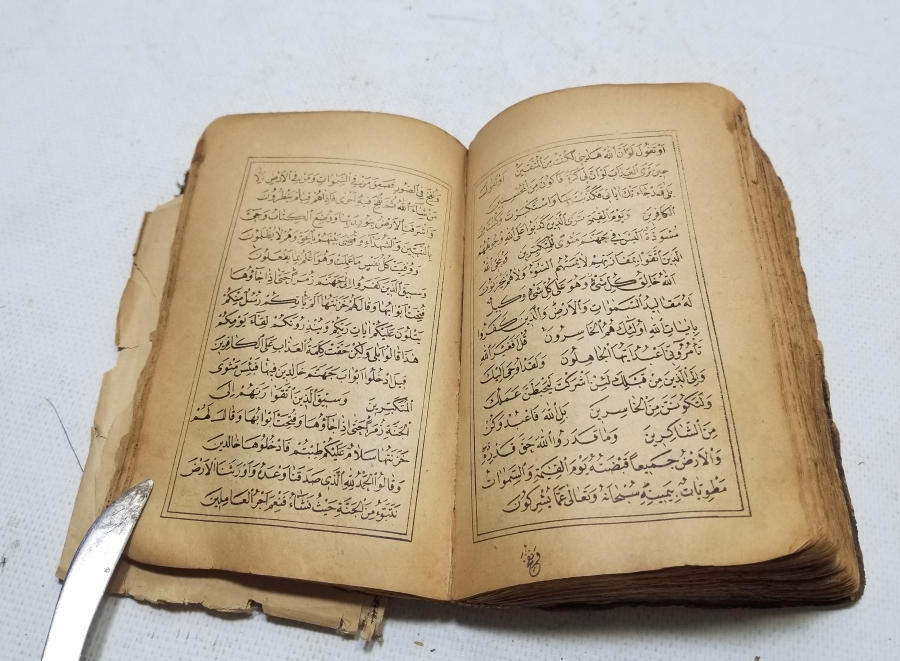 او تقول لو ان الله هديني لكنت من المتقين او تقول
حين ترى العذاب لو ان لي كرة فاكون من المحسنين
بلى قد جاءتك اياتي فكذبت بها واستكبرت وكنت من
الكافرين ويوم القيمة ترى الذين كذبوا على الله وجوههم
مسودة اليس في جهنم مثوى للمتكبرين وينجي الله
الذين اتقوا بمفازتهم لا يمسهم السوء ولا هم يحزنون
الله خالق كل شيء وهو على كل شيء وكيل
له مقاليد السموات والارض والذين كفروا
بايات الله اولئك هم الخاسرون قل افغير الله
تأمروني اعبد ايها الجاهلون ولقد اوحي اليك
والى الذين من قبلك لئن اشركت ليحبطن عملك
ولتكونن من الخاسرين بل الله فاعبد وكن
من الشاكرين وما قدروا الله حق قدره
والارض جميعا قبضته يوم القيمة والسموات
مطويات بيمينه سبحانه وتعالى عما يشركون
ونفخ
ونفخ في الصور فصعق من في السموات ومن في الارض الا
من شاء الله ثم نفخ فيه اخرى فاذا هم قيام ينظرون
واشرقت الارض بنور ربها ووضع الكتاب وجئ
بالنبيين والشهداء وقضي بينهم بالحق وهم لا يظلمون
ووفيت كل نفس ما عملت وهو اعلم بما يفعلون
وسيق الذين كفروا الى جهنم زمرا حتى اذا جاؤها
فتحت ابوابها وقال لهم خزنتها الم يأتكم رسل منكم
يتلون عليكم ايات ربكم وينذرونكم لقاء يومكم
هذا قالوا بلى ولكن حقت كلمة العذاب على الكافرين
قيل ادخلوا ابواب جهنم خالدين فيها فبئس مثوى
المتكبرين وسيق الذين اتقوا ربهم الى
الجنة زمرا حتى اذا جاؤها وفتحت ابوابها وقال لهم
خزنتها سلام عليكم طبتم فادخلوها خالدين
وقالوا الحمد لله الذي صدقنا وعده واورثنا الارض
نتبوء من الجنة حيث نشاء فنعم اجر العاملين